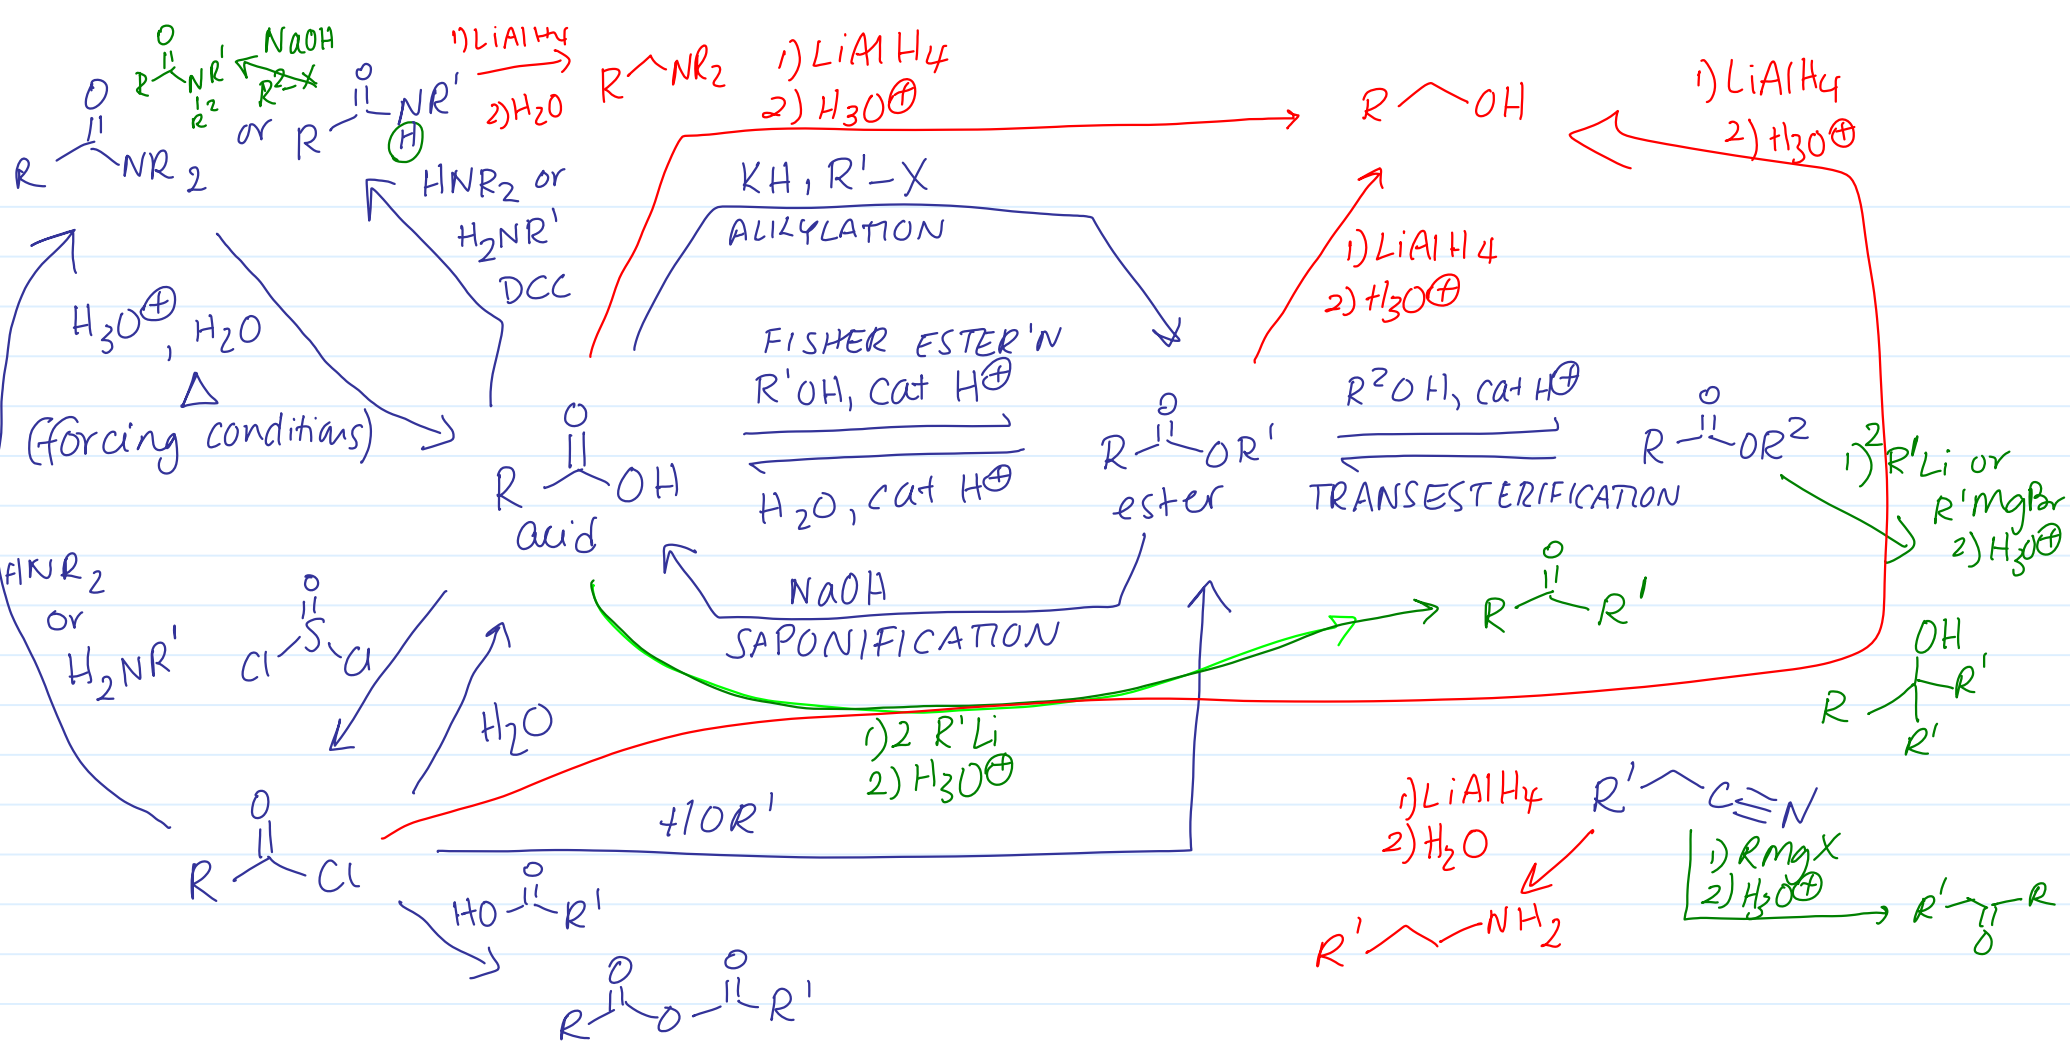 O
NaOH
R NR'
R²
R²–X
O
R NR2
or
O
R NR'
H
1) LiAlH4
2) H2O
R NR2
1) LiAlH4
2) H3O⊕
R OH
1) LiAlH4
2) H3O⊕
HNR2 or
H2NR'
DCC
KH, R'–X
ALKYLATION
1) LiAlH4
2) H3O⊕
H3O⊕, H2O
△
(forcing conditions)
FISHER ESTER'N
R'OH, cat H⊕
H2O, cat H⊕
O
R OH
acid
O
R OR'
ester
R²OH, cat H⊕
TRANSESTERIFICATION
O
R OR²
1) 2 R'Li or
R'MgBr
2) H3O⊕
HNR2
or
H2NR'
O
S
Cl Cl
H2O
NaOH
SAPONIFICATION
O
R R'
OH
R R'
R'
1) 2 R'Li
2) H3O⊕
HOR'
O
R Cl
O
HO R'
O O
R O R'
1) LiAlH4
2) H2O
R' C≡N
1) RMgX
2) H3O⊕
R' NH2
R' R
O